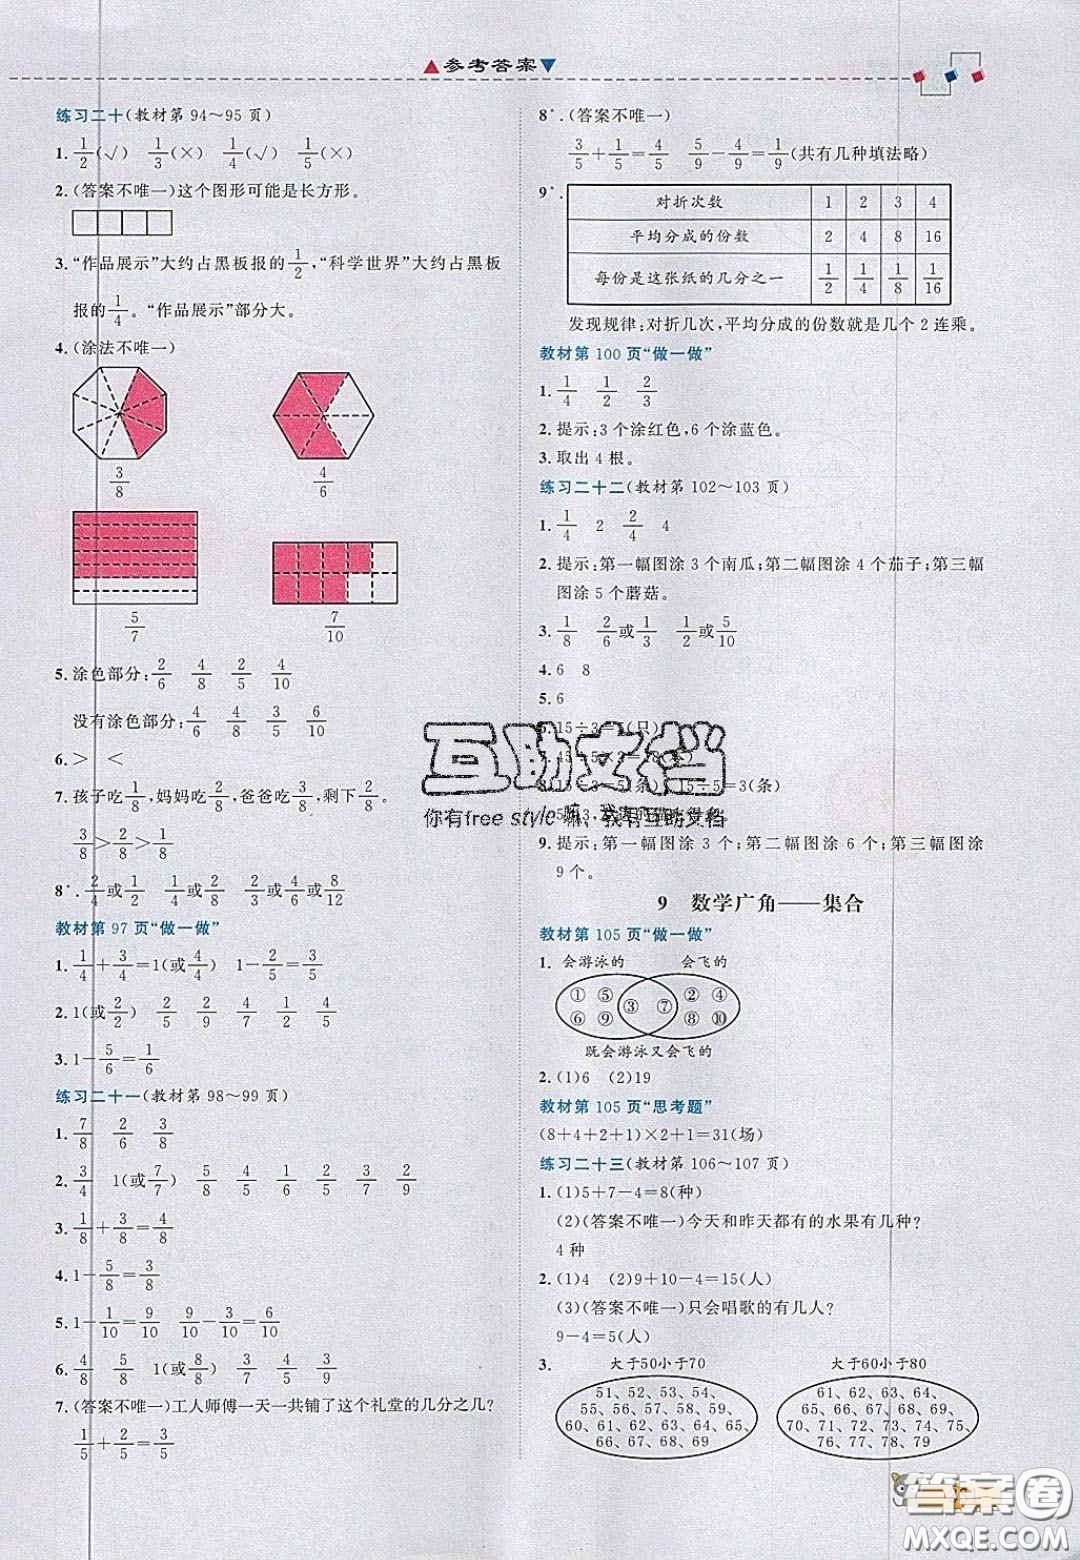 参考答案
练习二十(教材第94～95页)
1. 1/2(√) 1/3(×) 1/4(√) 1/5(×)
2. (答案不唯一)这个图形可能是长方形。
3. “作品展示”大约占黑板报的1/2,“科学世界”大约占黑板
报的1/4。“作品展示”部分大。
4. (涂法不唯一)
3/8 4/6
5/7 7/10
5. 涂色部分: 2/6 4/8 2/5 4/10
没有涂色部分: 4/6 4/8 3/5 6/10
6. > <
7. 孩子吃1/8,妈妈吃2/8,爸爸吃3/8,剩下2/8。
3/8>2/8>1/8
8*. 2/4或1/2 1/4或2/8 4/6或8/12
教材第97页“做一做”
1. 1/4+3/4=1(或4/4) 1-2/5=3/5
2. 1(或2/2) 2/5 2/9 4/7 4/6 1/3
3. 1-5/6=1/6
练习二十一(教材第98～99页)
1. 7/8 2/6 3/8
2. 3/4 1(或7/7) 5/8 4/5 2/9 4/7 2/6
3. 1/8+3/8=4/8
4. 1-5/8=3/8
5. 1-1/10=9/10 9/10-3/10=6/10
6. 4/8 5/8 1(或8/8) 3/7 4/5 3/9
7. (答案不唯一)工人师傅一天一共铺了这个礼堂的几分之几?
1/5+2/5=3/5
8*. (答案不唯一)
3/5+1/5=4/5 5/9-4/9=1/9(共有几种填法略)
9*. 对折次数 1 2 3 4
平均分成的份数 2 4 8 16
每份是这张纸的几分之一 1/2 1/4 1/8 1/16
发现规律:对折几次,平均分成的份数就是几个2连乘。
教材第100页“做一做”
1. 1/4 1/2 2/3
2. 提示:3个涂红色,6个涂蓝色。
3. 取出4根。
练习二十二(教材第102～103页)
1. 1/4 2 2/4 4
2. 提示:第一幅图涂3个南瓜;第二幅图涂4个茄子;第三幅
图涂5个蘑菇。
3. 1/8 2/6或1/3 1/2或5/10
4. 6 8
5. 6
互助文档
你有free style嘛、我有互助文档
9. 提示:第一幅图涂3个;第二幅图涂6个;第三幅图涂
9个。
9 数学广角——集合
教材第105页“做一做”
1. 会游泳的 会飞的
① ⑤ ③ ⑦ ② ④
⑥ ⑨ ⑧ ⑩
既会游泳又会飞的
2. (1)6 (2)19
教材第105页“思考题”
(8+4+2+1)×2+1=31(场)
练习二十三(教材第106～107页)
1. (1)5+7-4=8(种)
(2)(答案不唯一)今天和昨天都有的水果有几种?
4种
2. (1)4 (2)9+10-4=15(人)
(3)(答案不唯一)只会唱歌的有几人?
9-4=5(人)
3. 大于50小于70 大于60小于80
51、52、53、54、 61、62、63、64、
55、56、57、58、59、 65、66、67、68、69、
60、61、62、63、64、65、 70、71、72、73、74、75、
66、67、68、69 76、77、78、79
答案圈
MXQE.COM